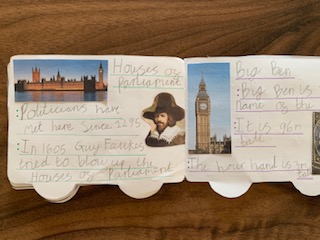 Houses of
Parliament
Politicians have
met here since 1295
In 1605 Guy Fawkes
tried to blow up the
Houses of Parliament
Big Ben
Big Ben is
name of the
It is 96m
The hour hand is 3m